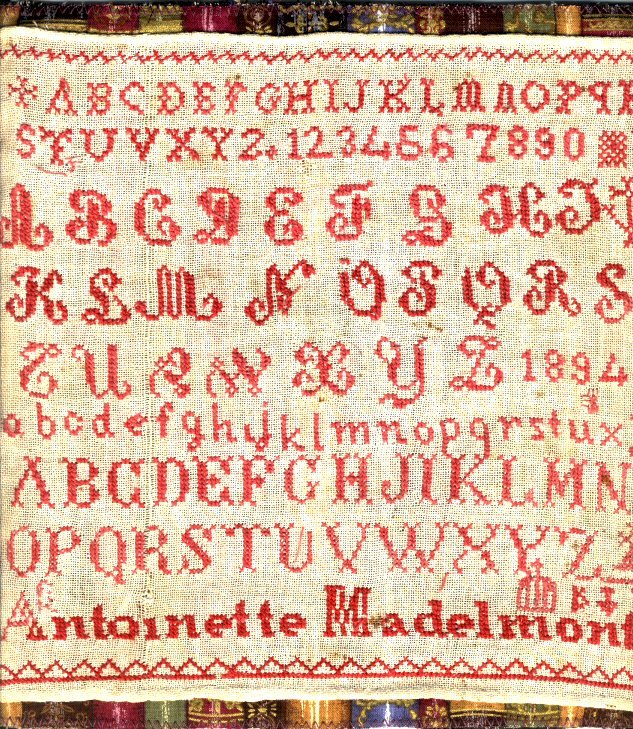 A B C D E F G H I J K L M N O P Q R
S T U V X Y Z 1 2 3 4 5 6 7 8 9 0
A B C D E F G H I J
K L M N O P Q R S
T U V W X Y Z 1894
a b c d e f g h i j k l m n o p q r s t u x
A B C D E F G H J I K L M N
O P Q R S T U V W X Y Z
Antoinette Madelmont